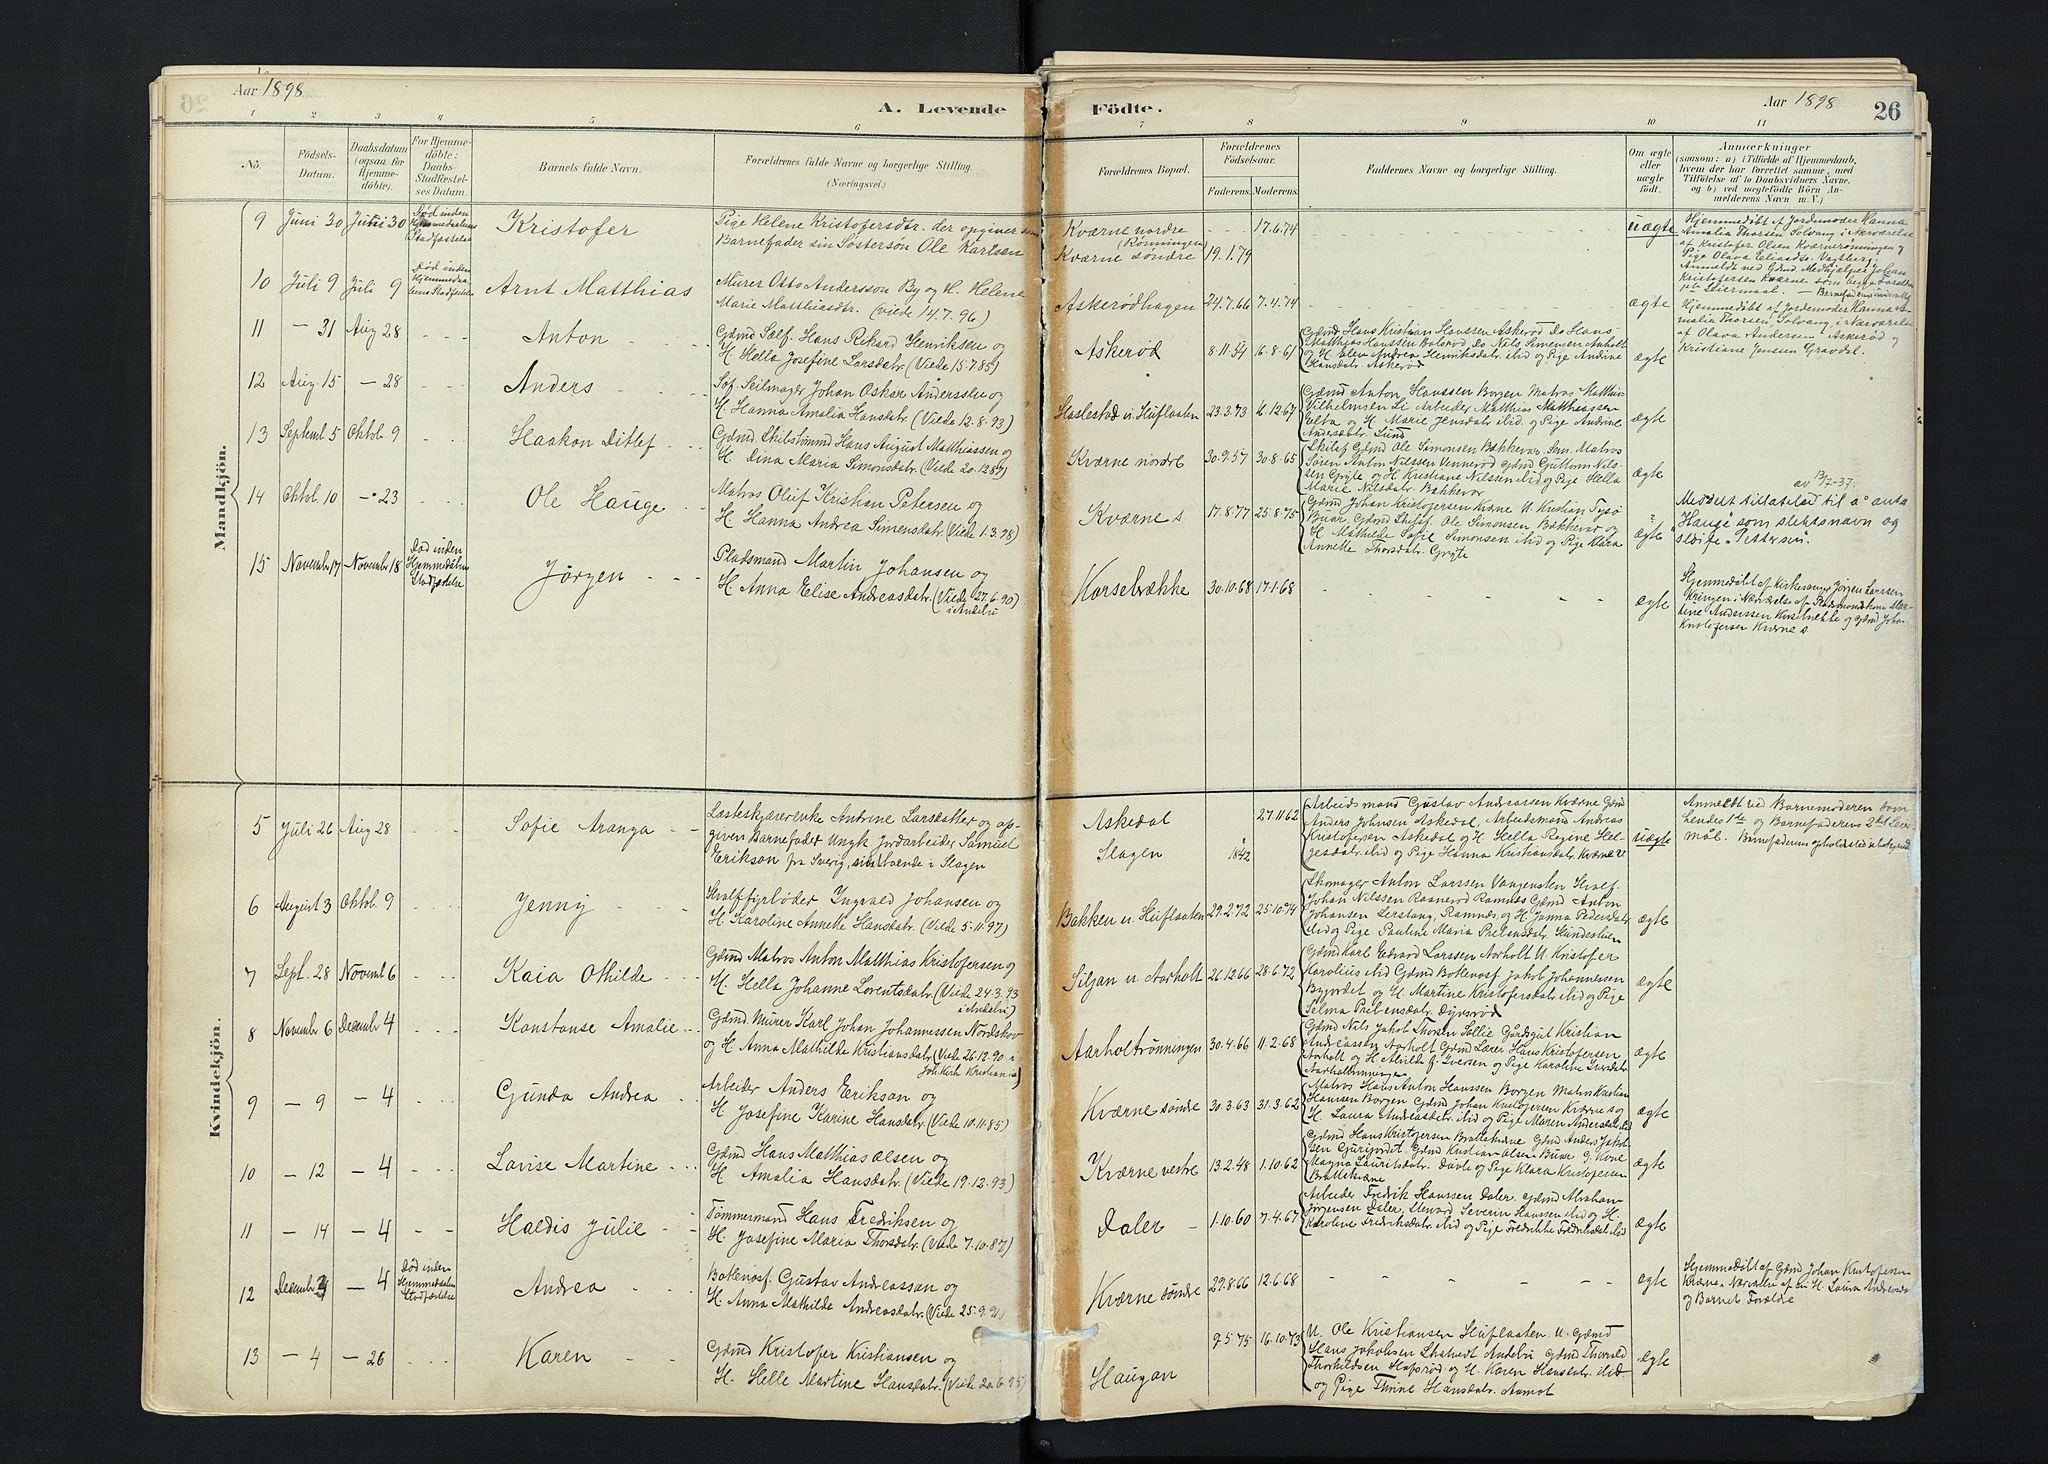 Aar 1898
A. Levende
Födte.
Aar 1898
26
1 2 3 4 5 6 7 8 9 10 11
No.
Födsels-
Datum.
Daabsdatum
(ogsaa for
Hjemme-
döbte).
For Hjemme-
döbte:
Daabs-
Stadfæstel-
ses Datum.
Barnets fulde Navn.
Forældrenes fulde Navne og borgerlige Stilling.
(Næringsvei.)
Forældrenes Bopæl.
Forældrenes
Födselsaar.
Faderens.
Moderens.
Faddernes Navne og borgerlige Stilling.
Om ægte
eller
uægte
födt.
Anmærkninger
(saasom: a) i Tilfælde af Hjemmedaab,
hvem der har forrettet samme, med
Tilföielse af to Daabsvidners Navne,
og b) ved uægtefödte Börn An-
melderens Navn m. V.)
Mandkjön.
9 Juni 30 Juni 30 Død inden
Hjemmedaabens
Stadfæstelse
Kristofer
Pige Helene Kristofersdtr. der opgiver som
Barnefader sin Søstersøn Ole Karlsen
Kværne nordre
(Rønningen)
Kværne søndre
17.6.74
19.1.79
uægte
Hjemmedøbt af Jordemoder Hanna
Amalia Thorsen Solvang i Nærværelse
af Kristofer Olsen Kværnerønningen og
Pige Olava Eliasdtr.
10 Juli 9 Juli 9 Død inden
Hjemmedaa-
bens Stadfæstelse
Arnt Matthias
Murer Otto Andersson By og H. Helene
Marie Matthiasdtr. (viede 14.7.96)
Askerødhagen 24.7.66 7.4.74
ægte
Hjemmedøbt af Jordemoder Hanna A-
malia Thorsen, Solvang i Nærværelse
af Olava Andersen Askerød og
Kristiane Jensen Gravdal.
11 — 31 Aug 28
Anton
Gdmd Sælf. Hans Rikard Henriksen og
H. Hella Josefine Larsdatr. (Viede 15.7.85)
Askerød 8.11.54 16.8.61
Gdmd Hans Kristian Hanssen Askerød Do Hans
Matthias Hanssen Bolsrød Do Nils Simensen Aaholt
og H. Elev Andrea Henriksdatr. ibid og Pige Andine
Hansdatr. Askerød
ægte
12 Aug. 15 — 28
Anders
Søf. Seilmager Johan Oskar Anderssen og
H. Hanna Amalia Hansdatr. (Viede 12.8.93)
Haslestad u. Hüflaaten 23.3.73 16.12.67
Gdmd Anton Hanssen Borgen Matros Matthias
Vilhelmsen Li Arbeider Matthias Matthiassen
H. Marie Jensdatr. ibid. og Pige Andine
Andersdatr. Sund
ægte
13 Septemb. 5 Oktob. 9
Haakon Ditlef
Gdmd. Skibstømmd Hans August Matthiassen og
H. Dina Maria Simonsdatr. (Viede 20.12.87)
Kværne nordre 30.9.57 30.8.65
Skibsf Gdmd Ole Simonsen Bakkevar Sem. Matros
Søren Anton Nilssen Vennerød Gdmd Guttorm Nils-
sen Gryte og H. Kristiane Nilssen ibid og Pige Hella
Marie Nilsdatr. Bakkevar
ægte
14 Oktob. 10 — 23
Ole Hauge
Matros Oluf Kristian Petersen og
H. Hanna Andrea Simensdatr. (Viede 1.3.98)
Kværne s 17.8.77 25.8.75
Gdmd Johan Kristofersen Kværne U. Kristian Tysø
Buar Gdmd Skibsf. Ole Simonsen Bakkevar og
H. Mathilde Sofie Simonsen ibid og Pige Klara
Annette Thorsdatr. Gryte
ægte
av 13/7-37.
Meddelt tillatelse til å anta
"Hauge" som slektsnavn og
sløife "Pettersen".
15 November 17 November 18 Død inden
Hjemmedaabens
Stadfæstelse
Jørgen
Pladsmand Martin Johansen og
H. Anna Elise Andreasdatr. (Viede 27.6.90)
i Andebu
Korsebrække 30.10.68 17.1.68
ægte
Hjemmedøbt af Kirkesanger Jørgen Larssen
Kringen i Nærværelse af Pladsmandskone Mar-
tine Anderssen Korsebrekke og Gdmd Johan
Kristofersen Kværne s.
Kvindekjön.
5 Juli 26 Aug 28
Sofie Aranga
Losteskjærerenke Andrine Larsdatter og op-
given Barnefader Ungk. Jordarbeider Samuel
Erikson fra Sverig, boende i Slagen
Askedal
Slagen
27.11.62
1842
Arbeidsmand Gustav Andreassen Kværne Gdmd
Anders Johnsen Askedal, Arbeidsmand Andreas
Kristofersen Askedal og H. Hella Regine Hel-
gesdatr. ibid og Pige Hanna Kristiansdatr. Kværne V
uægte
Anmeldt ved Barnemoderen som
hendes 1ste og Barnefaderens 2det Leier-
mål.
6 August 3 Oktob. 9
Jenny
Hvalffyrbøder Ingvald Johansen og
H. Karoline Annette Hansdatr. (Viede 5.11.97)
Bakken u. Hüflaaten 29.2.72 25.10.74
Skomager Anton Larssen Vangensten Hvalf.
Johan Nilssen Raanerød Ramnes Gdmd Anton
Johansen Lerstang, Ramnes, og H. Janna Pedersdatr
ibid og Pige Pauline Maria Prebensdatr.
ægte
7 Sept. 28 Novemb 6
Kaia Othilde
Gdmd Matros Anton Matthias Kristofersen og
H. Hella Johanne Lorentsdatr. (Viede 24.3.93
i Andebu)
Siljan u. Aarholt 26.12.66 28.6.72
Gdmd Karl Edvard Larssen Aarholt U. Kristofer
Karolius ibid Gdmd Bottenosf. Jakob Johannesen
Byjordet og H. Martine Kristofersdatr ibid og Pige
Selma Prebensdatr. Dyrsrød
ægte
8 November 6 December 4
Konstanse Amalie
Gdmd. Murer Karl Johan Johannessen Nordskov
og H. Anna Mathilde Kristiansdatr. (Viede 26.12.90 i
Joh. Kirk Kristiania)
Aarholtrønningen 30.4.66 11.2.68
Gdmd Nils Jakob Thorsen Sollie Gårdsgut Kristian
Andreassen Aarholt Gdmd Lærer Hans Kristofersen
Aarholt og H. Alvilde G. Iversen og Pige Karoline Larsdatr.
Aarholtrønningen
ægte
9 — 9 — 4
Gunda Andrea
Arbeider Anders Erikson og
H. Josefine Karine Hansdatr. (Viede 10.11.85)
Kværne søndre 30.3.63 31.3.62
Matros Hans Anton Hanssen Borgen Matros Kristian
Hanssen Borgen Gdmd Johan Kristofersen Kværne s og
H. Laura Andreasdatr. ibid og Pige Maren Andersdatr. ibid
ægte
10 — 12 — 4
Lovise Martine
Gdmd Hans Matthias Olsen og
H. Amalia Hansdatr. (Viede 19.12.93)
Kværne vestre 13.2.48 1.10.62
Gdmd Hans Kristofersen Brattekværne Gdmd Anders Jakob-
sen Gurijordet Gdmd Kristian Olsen Buar G. Kone
Magna Lauritsdatr. Dovle og Pige Klara Kristofersen
Brattekværne
ægte
11 — 14 — 4
Haldis Julie
Tømmermand Hans Fredriksen og
H. Josefine Maria Thorsdatr. (Viede 7.10.87)
Daler 1.10.60 7.4.67
Arbeider Fredrik Hanssen Daler. Gdmd Abraham
Jørgensen Daler, Steward Severin Hanssen ibid og H.
Karoline Fredriksdatr. ibid og Pige Fredrikke Fredriksdatr. ibid
ægte
12 December 3 — 4 Død inden
Hjemmedaabens
Stadfæstelse
Andrea
Bottenosf. Gustav Andreassen og
H. Anna Mathilde Andreasdatr. (Viede 25.9.91)
Kværne søndre 29.8.66 12.6.68
ægte
Hjemmedøbt af Gdmd Johan Kristofersen
Kværne i Nærvær af sin H. Laura Andreasdr
og Barnets Forældre
13 — 4 — 26
Karen
Gdmd Kristofer Kristiansen og
H. Helle Martine Hansdatr. (Viede 20.6.95)
Haugan 9.5.75 16.10.73
U. Ole Kristiansen Hüflaaten U. Gdmd
Hans Jakobsen Skatvedt Andebu Gdmd Thorvald
Thorkildsen Hapsrød og H. Karen Hansdatr. ibid
og Pige Thrine Hansdatr. Aamot
ægte